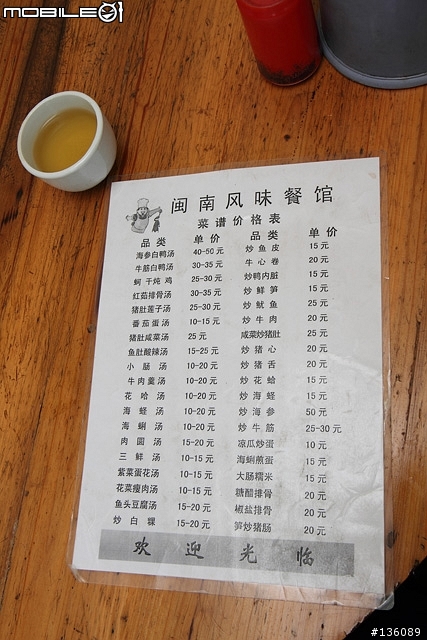 MOBILE01
闽南风味餐馆
菜谱价格表
品类 单价 品类 单价
海参白鸭汤 40-50元 炒鱼皮 15元
牛筋白鸭汤 30-35元 牛心卷 20元
蚵干炖鸡 25-30元 炒鸭内脏 15元
红菇排骨汤 30-35元 炒鲜笋 15元
猪肚莲子汤 25-30元 炒鱿鱼 25元
番茄蛋汤 10-15元 炒牛肉 20元
猪肚咸菜汤 25元 咸菜炒猪肚 25元
鱼肚酸辣汤 15-25元 炒猪心 20元
小肠汤 10-20元 炒猪舌 20元
牛肉羹汤 10-20元 炒花蛤 15元
花哈汤 10-20元 炒海蛏 15元
海蛏汤 10-20元 炒海参 50元
海蜊汤 10-20元 炒牛筋 25-30元
肉圆汤 15-20元 凉瓜炒蛋 10元
三鲜汤 10-15元 海蜊煎蛋 15元
紫菜蛋花汤 10-15元 大肠糯米 15元
花菜瘦肉汤 10-15元 糖醋排骨 20元
鱼头豆腐汤 15-20元 椒盐排骨 20元
炒白粿 15-20元 笋炒猪肠 20元
欢迎光临
#136089